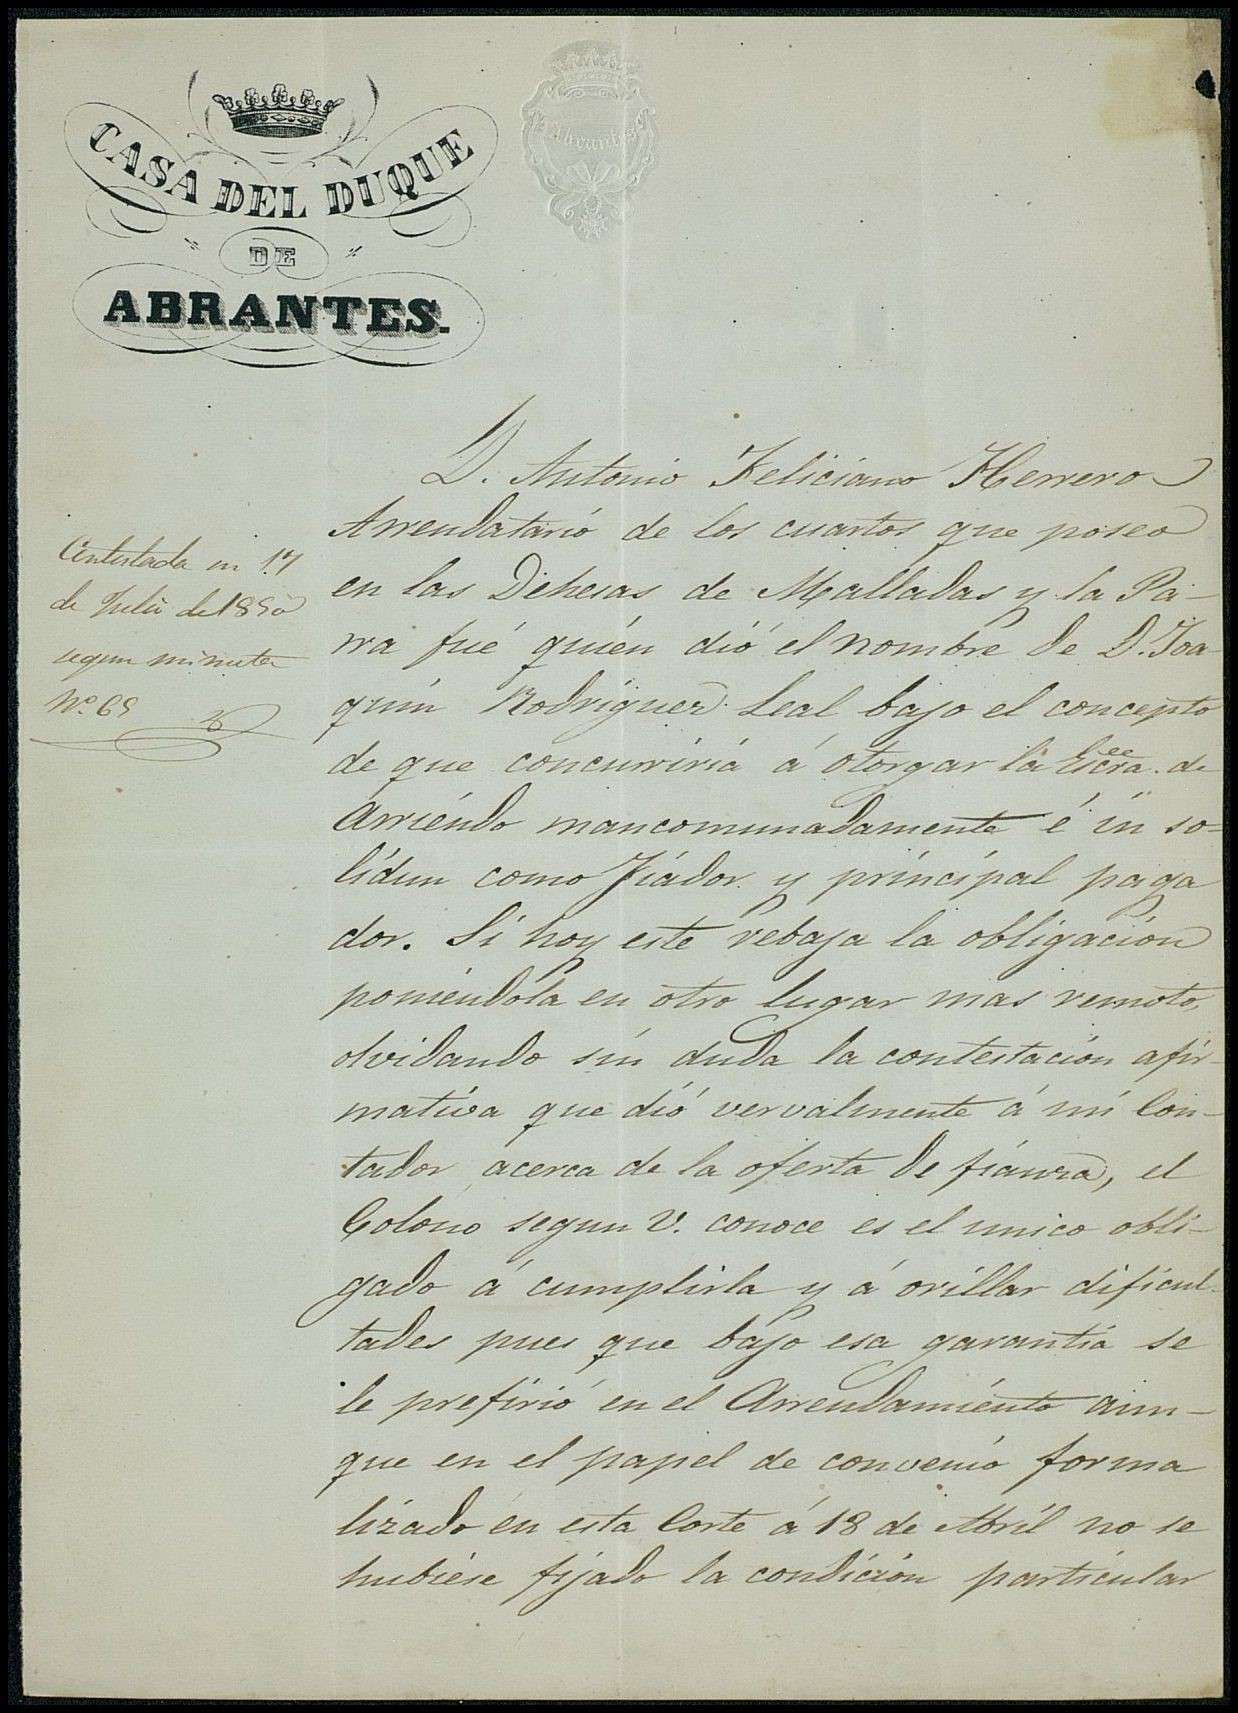 CASA DEL DUQUE
DE
ABRANTES.
Abrantes
D. Antonio Feliciano Herrero
Arrendatario de los cuartos que poseo
en las Dehesas de Malladas y la Pa-
rra fué quien dió el nombre de D. Joa-
quin Rodriguez Leal bajo el concepto
de que concurriria á otorgar la Escra. de
Arriendo mancomunadamente é in so-
lidun como Fiador y principal paga
dor. Si hoy este rebaja la obligacion
poniendola en otro lugar mas remoto,
olvidando sin duda la contestacion afir-
mativa que dió vervalmente á mi Con-
tador acerca de la oferta de fianza, el
Colono segun V. conoce es el unico obli-
gado á cumplirla y á orillar dificul-
tades pues que bajo esa garantia se
le prefirió en el Arrendamiento aun-
que en el papel de convenio forma
lizado en esta Corte á 18 de Abril no se
hubiese fijado la condicion particular
Contestada en 17
de Julio de 1850
segun minuta
Nº 69